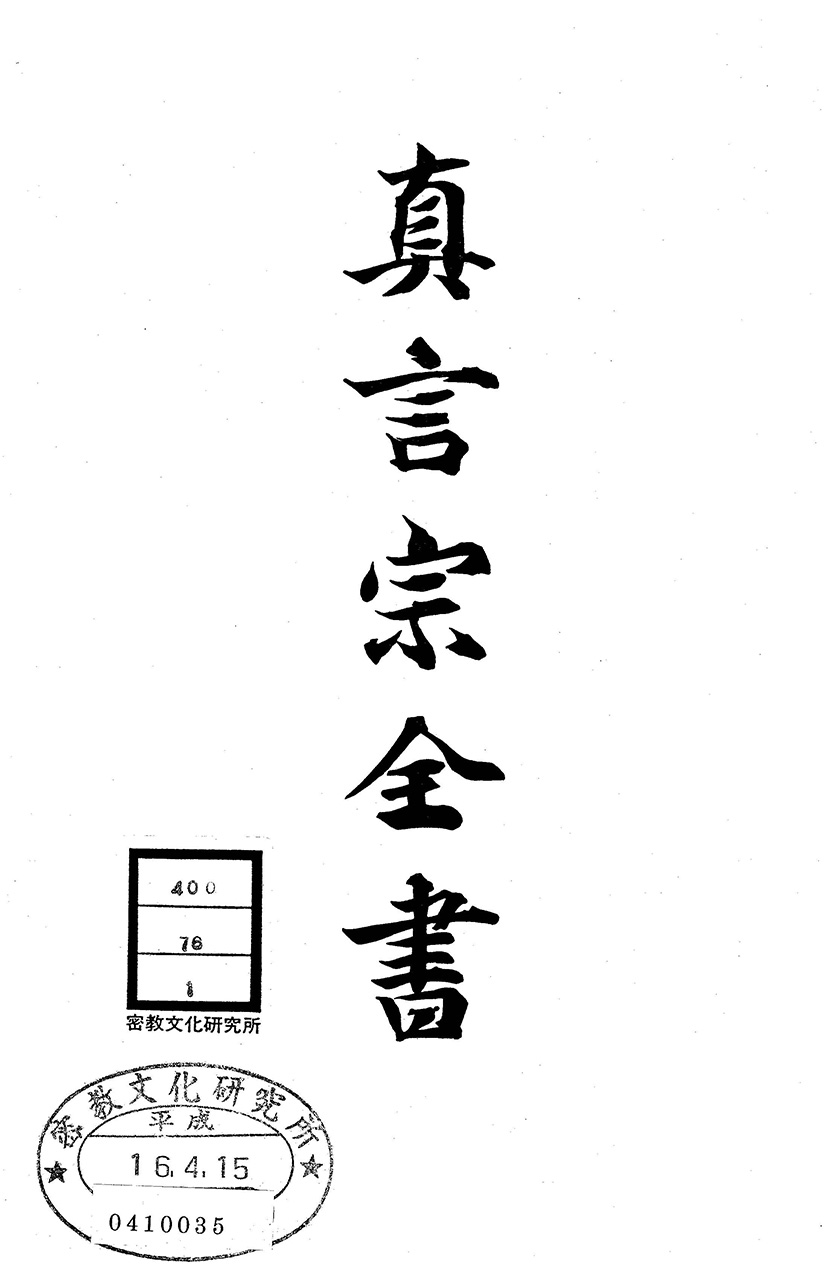 真言宗全書
400
76
1
密教文化研究所
密教文化研究所
平成
16.4.15
0410035